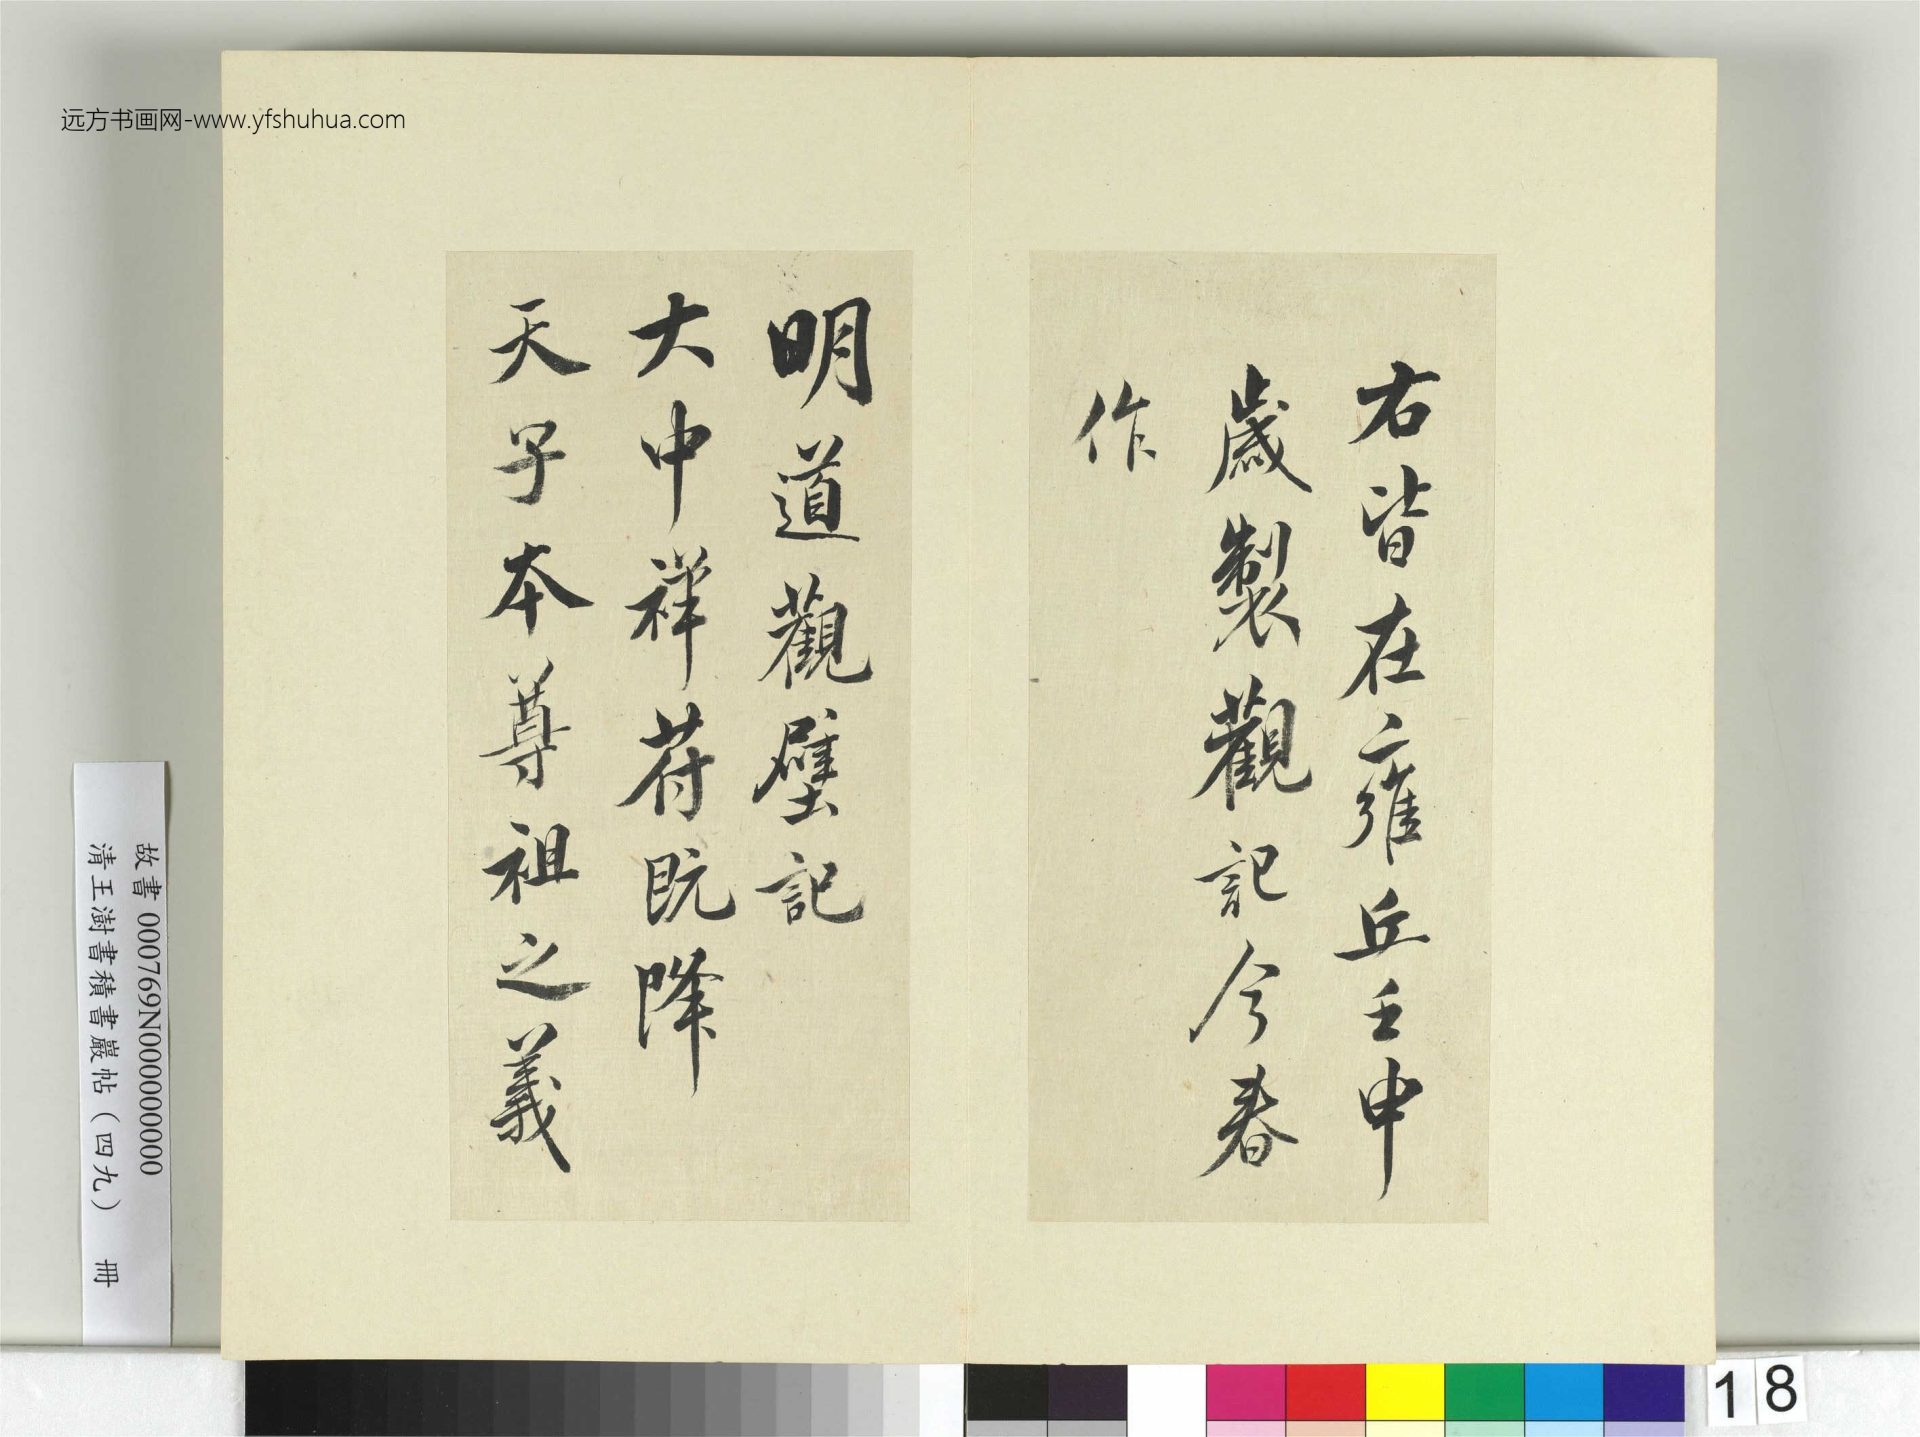 远方书画网-www.yfshuhua.com
右皆在雍丘壬申
歲製觀記今春
作
明道觀壁記
大中祥苻既降
天子本尊祖之義
故書 000769N000000000
清王澍書積書巖帖（四九） 冊
18